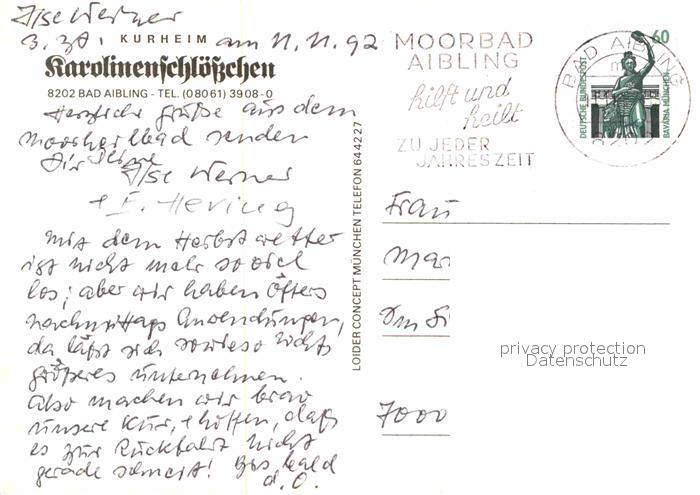 Ilse Werner
z. Zt. KURHEIM am 11.11.92
Karolinenschlößchen
8202 BAD AIBLING - TEL. (08061) 3908-0
Herzliche Grüße aus dem
Moorheilbad senden
Dir Deine
Ilse Werner
+ E. Hering
Mit dem Herbstwetter
ist nicht mehr so viel
los; aber wir haben öfters
nachmittags Anwendungen,
da läßt sich sowieso nichts
größeres unternehmen.
Also machen wir brav
unsere Kur, + hoffen, daß
es zur Rückfahrt nicht
gerade schneit! Bis bald
d. O.
LOIDER CONCEPT MÜNCHEN TELEFON 644227
MOORBAD
AIBLING
hilft und
heilt
ZU JEDER
JAHRESZEIT
BAD AIBLING
DEUTSCHE BUNDESPOST
60
BAVARIA MÜNCHEN
Frau
Mar
Im Si
7000
privacy protection
Datenschutz